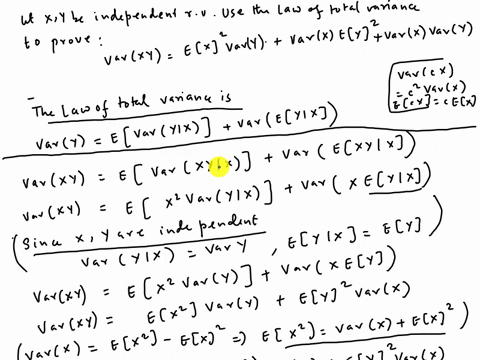 Let X,Y be independent r.v. Use the law of total variance
to prove:
Var(XY) = E[X]² Var(Y) + Var(X) E[Y]² + Var(X) Var(Y)
Var(cX)
= c² Var(X)
E[cX] = c E[X]
The Law of total variance is
Var(Y) = E[Var(Y|X)] + Var(E[Y|X])
Var(XY) = E[Var(XY|X)] + Var(E[XY|X])
Var(XY) = E[X² Var(Y|X)] + Var(X E[Y|X])
(Since X, Y are independent
Var(Y|X) = Var Y, E[Y|X] = E[Y])
Var(XY) = E[X² Var(Y)] + Var(X E[Y])
Var(XY) = E[X²] Var(Y) + E[Y]² Var(X)
(Var(X) = E[X²] - E[X]² => E[X²] = Var(X) + E[X]²)